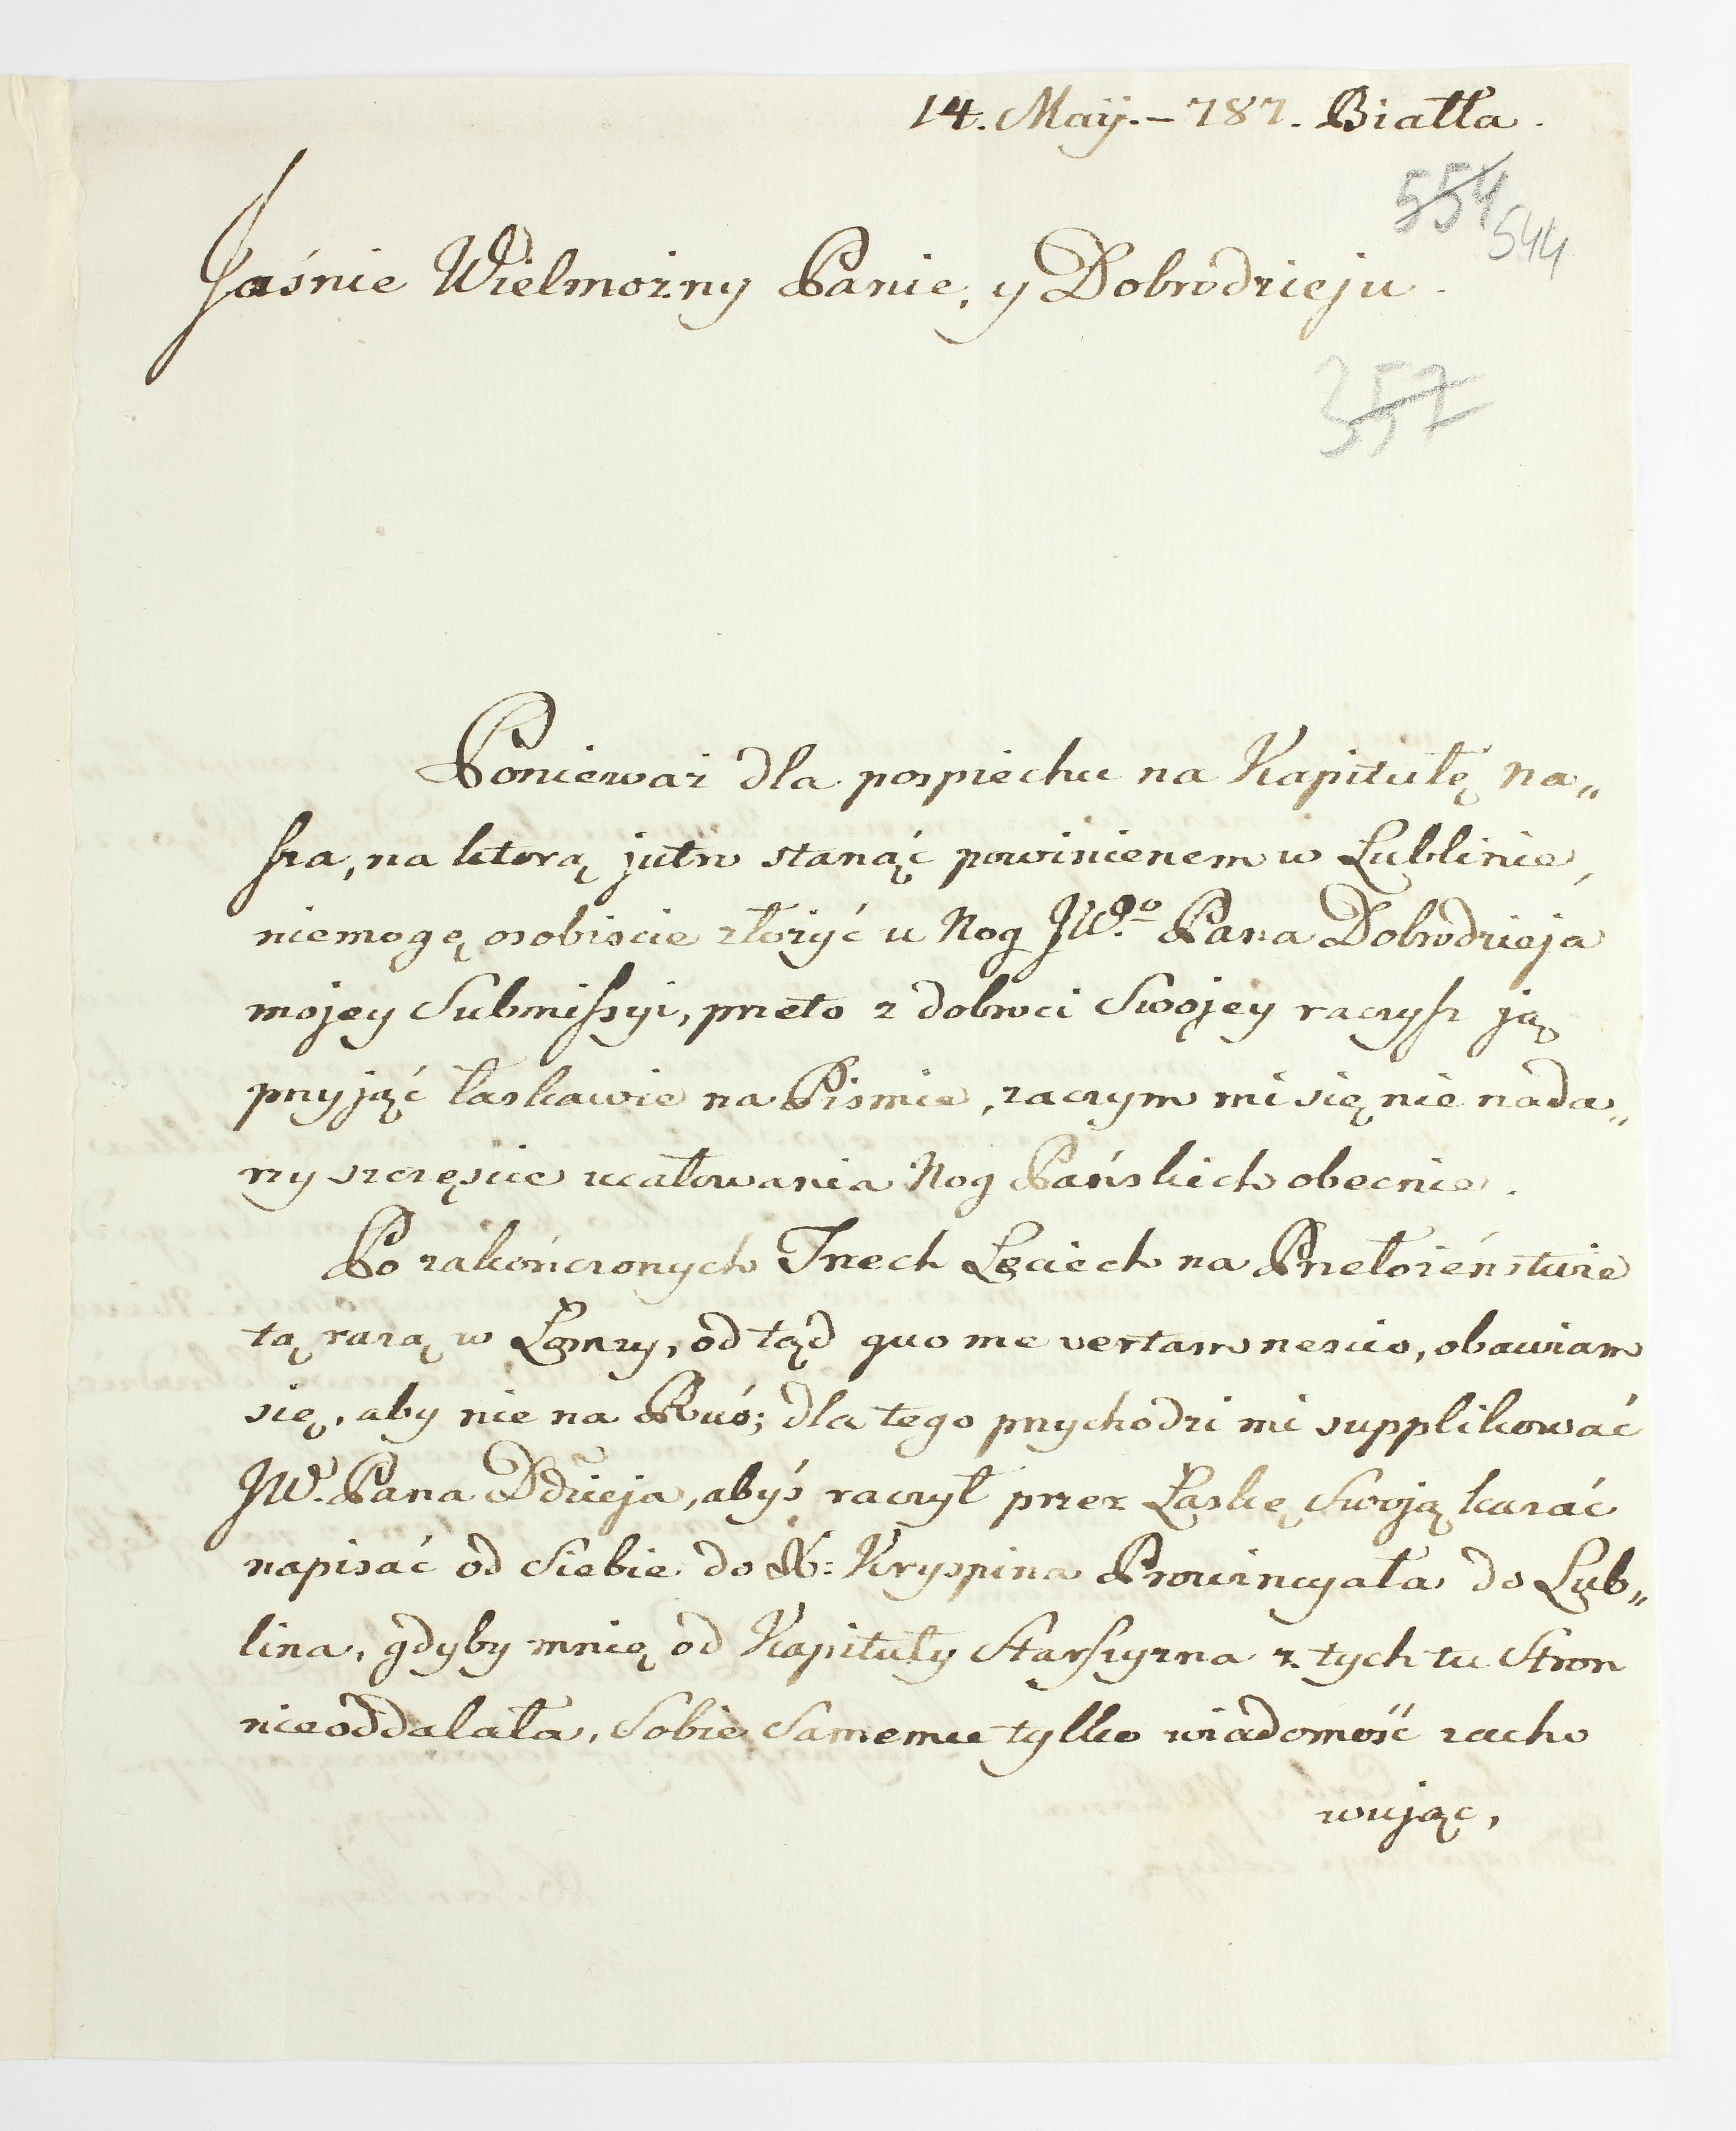 14. Maij. – 787. Biatla.
554
544
Jaśnie Wielmożny Panie, y Dobrodzieju.
357
Poniewaz dla pospiechu na Kapitułę na„
sza, na ktorą jutro stanąć powinienem w Lublinie,
niemogę osobiscie złożyć u Nog JWgo Pana Dobrodzieja
mojey Submissyi, przeto z dobroci Swojey raczysz ją
przyjąć łaskawie na Pismie, zaczym mi się nie nada„
rzy szczęscie ucałowania Nog Pańskich obecnie.
Po zakończonych Trzech Leciech na Przełożeństwie
tą razą w Łomzy, od tąd quo me vertam nescio, obawiam
się, aby nie na Ruś; dla tego przychodzi mi supplikować
JW. Pana Ddzieja, abyś raczył przez Łaskę Swoją kazać
napisać od Siebie do X: Kryspina Prowincyała do Lub„
lina, gdyby mnię od Kapituły Starszyzna z tych tu Stron
nieoddalała, Sobie Samemu tylko wiadomość zacho
wując,